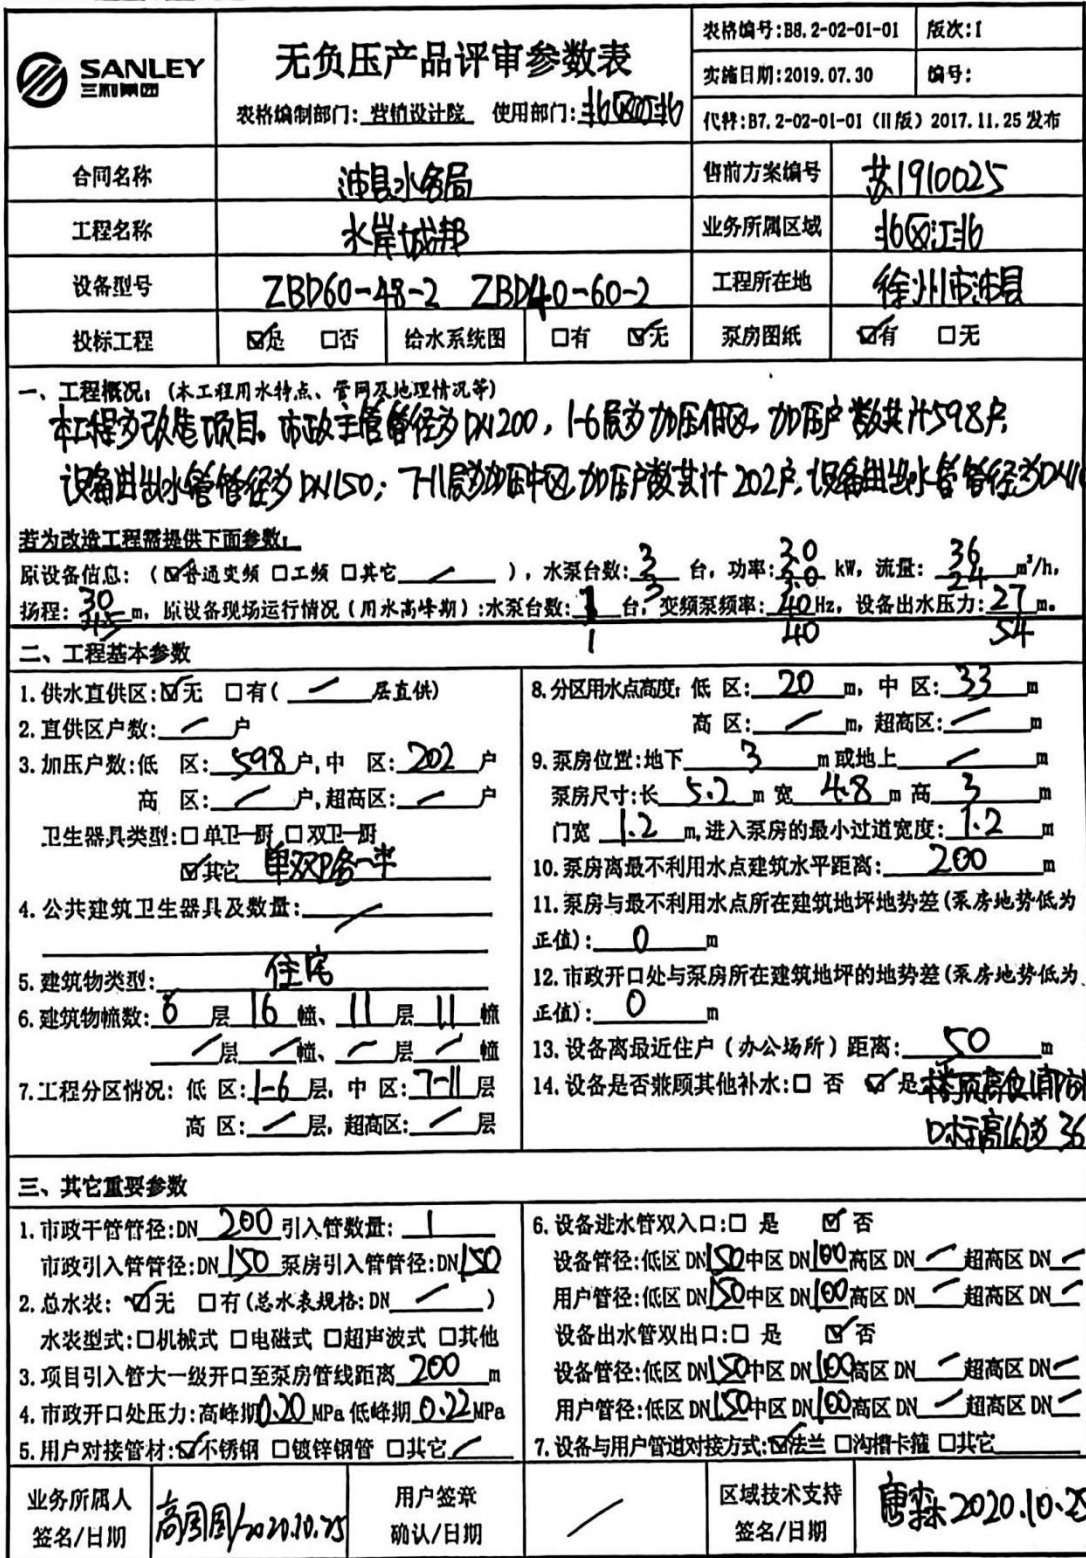 SANLEY
三利集团
无负压产品评审参数表
表格编制部门:营销设计院 使用部门:北区江北
表格编号:B8.2-02-01-01 版次:I
实施日期:2019.07.30 编号:
代替:B7.2-02-01-01(II版)2017.11.25发布
合同名称 沛县水务局 售前方案编号 苏1910025
工程名称 水岸城邦 业务所属区域 北区江北
设备型号 ZBD60-48-2 ZBD40-60-2 工程所在地 徐州市沛县
投标工程 ☑是 □否 给水系统图 □有 ☑无 泵房图纸 ☑有 □无
一、工程概况:(本工程用水特点、管网及地理情况等)
本工程为改造项目。市政主管管径为DN200,1-6层为加压低区,加压户数共计598户,
设备进出水管管径为DN150;7-11层为加压中区,加压户数共计202户,设备进出水管管径为DN1
若为改造工程需提供下面参数:
原设备信息:(☑普通变频 □工频 □其它 / ),水泵台数:3 台,功率:3.0 kW,流量:36 m³/h,
3 3.0 24
扬程:30 m,原设备现场运行情况(用水高峰期):水泵台数: 台,变频泵频率:40Hz,设备出水压力:27m。
1 40 54
二、工程基本参数
1.供水直供区:☑无 □有( / 层直供)
2.直供区户数: / 户
3.加压户数:低 区:598户,中 区:202户
高 区: / 户,超高区: / 户
卫生器具类型:□单卫一厨 □双卫一厨
☑其它 单双卫各一半
4.公共建筑卫生器具及数量: /
5.建筑物类型: 住宅
6.建筑物幢数:6 层 16 幢、11 层 11 幢
/ 层 / 幢、 / 层 / 幢
7.工程分区情况:低 区:1-6 层,中 区:7-11 层
高 区: / 层,超高区: / 层
8.分区用水点高度:低 区:20 m,中 区:33 m
高 区: / m,超高区: / m
9.泵房位置:地下 3 m或地上 / m
泵房尺寸:长 5.2 m 宽 4.8 m 高 3 m
门宽 1.2 m,进入泵房的最小过道宽度:1.2 m
10.泵房离最不利用水点建筑水平距离:200 m
11.泵房与最不利用水点所在建筑地坪地势差(泵房地势低为
正值):0 m
12.市政开口处与泵房所在建筑地坪的地势差(泵房地势低为
正值):0 m
13.设备离最近住户(办公场所)距离:50 m
14.设备是否兼顾其他补水:□ 否 ☑ 是 楼顶高位消防
口标高约为36
三、其它重要参数
1.市政干管管径:DN 200 引入管数量: 1
市政引入管管径:DN 150 泵房引入管管径:DN 150
2.总水表:☑无 □有(总水表规格:DN / )
水表型式:□机械式 □电磁式 □超声波式 □其他
3.项目引入管大一级开口至泵房管线距离 200 m
4.市政开口处压力:高峰期0.20MPa 低峰期0.22MPa
5.用户对接管材:☑不锈钢 □镀锌钢管 □其它 /
6.设备进水管双入口:□ 是 ☑ 否
设备管径:低区DN150中区DN100高区DN / 超高区DN /
用户管径:低区DN150中区DN100高区DN / 超高区DN /
设备出水管双出口:□ 是 ☑ 否
设备管径:低区DN150中区DN100高区DN / 超高区DN /
用户管径:低区DN150中区DN100高区DN / 超高区DN /
7.设备与用户管道对接方式:☑法兰 □沟槽卡箍 □其它
业务所属人 用户签章 区域技术支持
签名/日期 2020.10.25 确认/日期 / 签名/日期 唐 2020.10.25